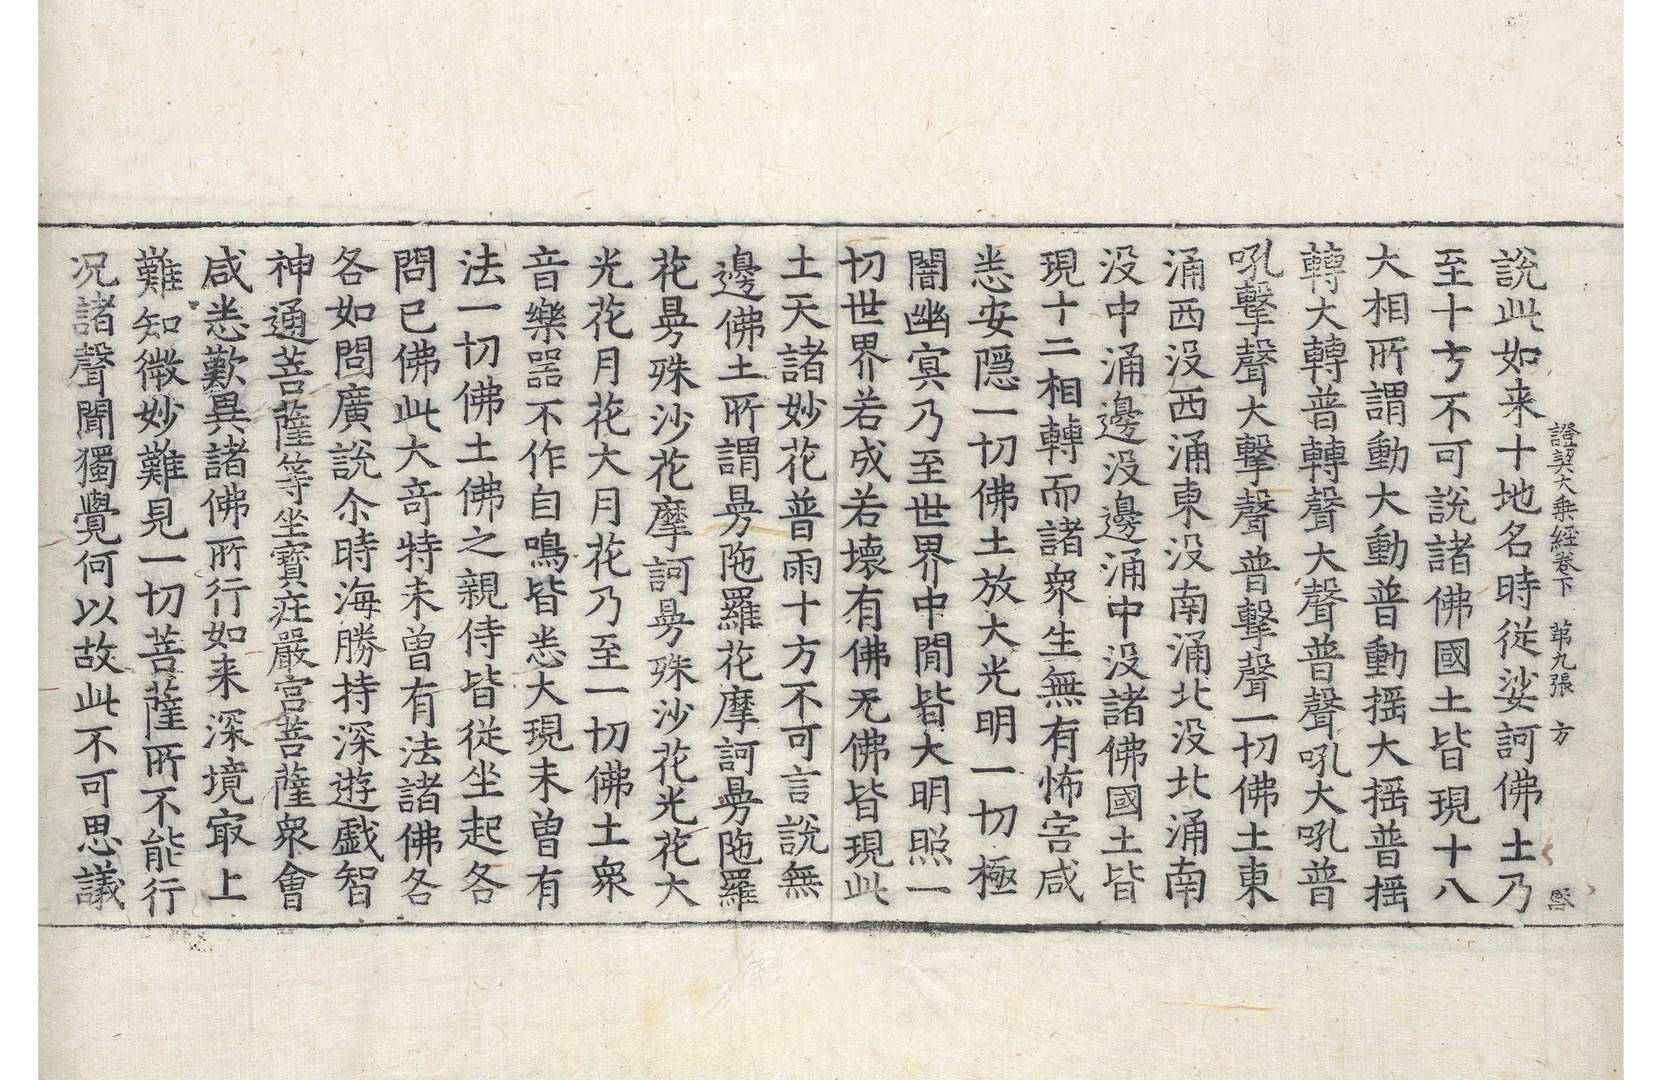 證契大乘經卷下 苐九張 方
說此如来十地名時從娑訶佛土乃
至十方不可說諸佛國土皆現十八
大相所謂動大動普動揺大揺普揺
轉大轉普轉聲大聲普聲吼大吼普
吼擊聲大擊聲普擊聲一切佛土東
涌西没西涌東没南涌北没北涌南
没中涌邊没邊涌中没諸佛國土皆
現十二相轉而諸衆生無有怖害咸
悉安隱一切佛土放大光明一切極
闇幽冥乃至世界中閒皆大明照一
切世界若成若壞有佛无佛皆現此
土天諸妙花普雨十方不可言說無
邊佛土所謂曼陁羅花摩訶曼陁羅
花曼殊沙花摩訶曼殊沙花光花大
光花月花大月花乃至一切佛土衆
音樂噐不作自鳴皆悉大現未曽有
法一切佛土佛之親侍皆從坐起各
問已佛此大竒特未曽有法諸佛各
各如問廣說尒時海勝持深遊戱智
神通菩薩等坐寳莊嚴宫菩薩衆會
咸悉歎異諸佛所行如来深境㝡上
難知微妙難見一切菩薩所不能行
况諸聲聞獨覺何以故此不可思議